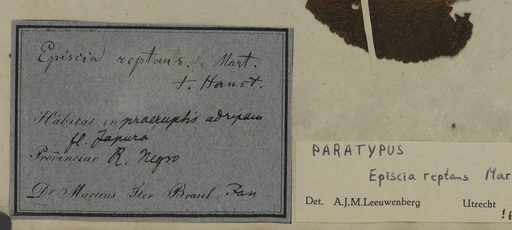 Episcia reptans. Mart.
t. Hanst.
Habitat in praeruptis ad ripam
fl. Japura
Provinciae R. Negro
Dr Martius Iter Brasil.
PARATYPUS
Episcia reptans Mar
Det. A.J.M.Leeuwenberg Utrecht